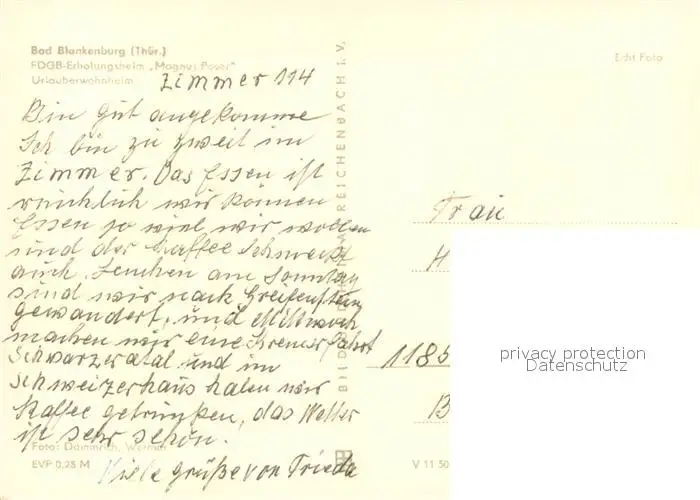 Bad Blankenburg (Thür.)
FDGB-Erholungsheim „Magnus Poser"
Urlauberwohnheim
Zimmer 114
Bin gut angekomme
Ich bin zu zweit im
Zimmer. Das Essen ist
reichlich wir können
Essen so viel wir wollen
und der Kaffee Schmeckt
auch. Lenchen am Sonntag
sind wir nach Greifenstein
gewandert, und Mittwoch
machen wir eine Kremserfahrt
Schwarzeratal und im
Schweizerhaus haben wir
Kaffee getrunken, das Wetter
ist sehr schön.
Viele Grüße von Frieda
Foto: Dämmrich, Weimar
EVP 0,28 M
REICHENBACH i. V.
Echt Foto
Frau
H
1185
B
V 11 50
privacy protection
Datenschutz